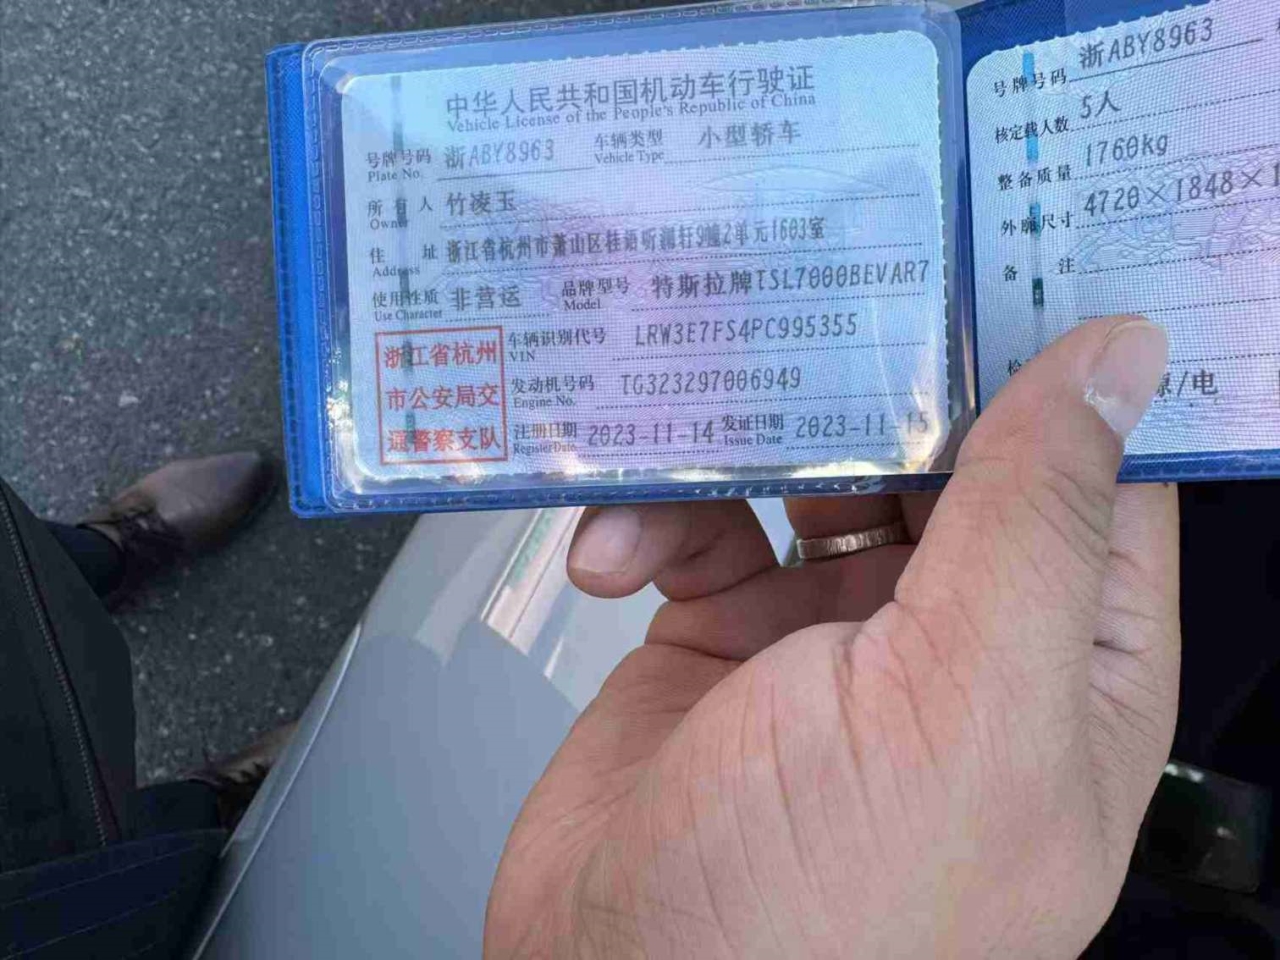 中华人民共和国机动车行驶证
Vehicle License of the People's Republic of China
号牌号码 浙ABY8963 车辆类型 小型轿车
Plate No. Vehicle Type
所有人 竹凌玉
Owner
住址 浙江省杭州市萧山区桂语听澜轩9幢2单元1603室
Address
使用性质 非营运 品牌型号 特斯拉牌TSL7000BEVAR7
Use Character Model
浙江省杭州
市公安局交
通警察支队
车辆识别代号 LRW3E7FS4PC995355
VIN
发动机号码 TG323297006949
Engine No.
注册日期 2023-11-14 发证日期 2023-11-15
Register Date Issue Date
号牌号码 浙ABY8963
核定载人数 5人
整备质量 1760kg
外廓尺寸 4720×1848×1
备注
检
源/电